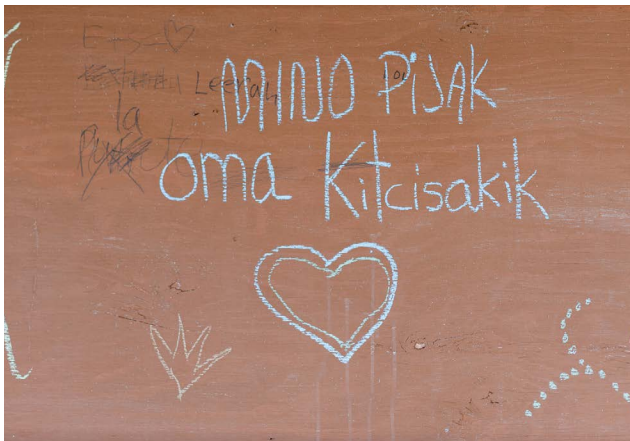 MINO PiJAK
oma Kitcisakik
la